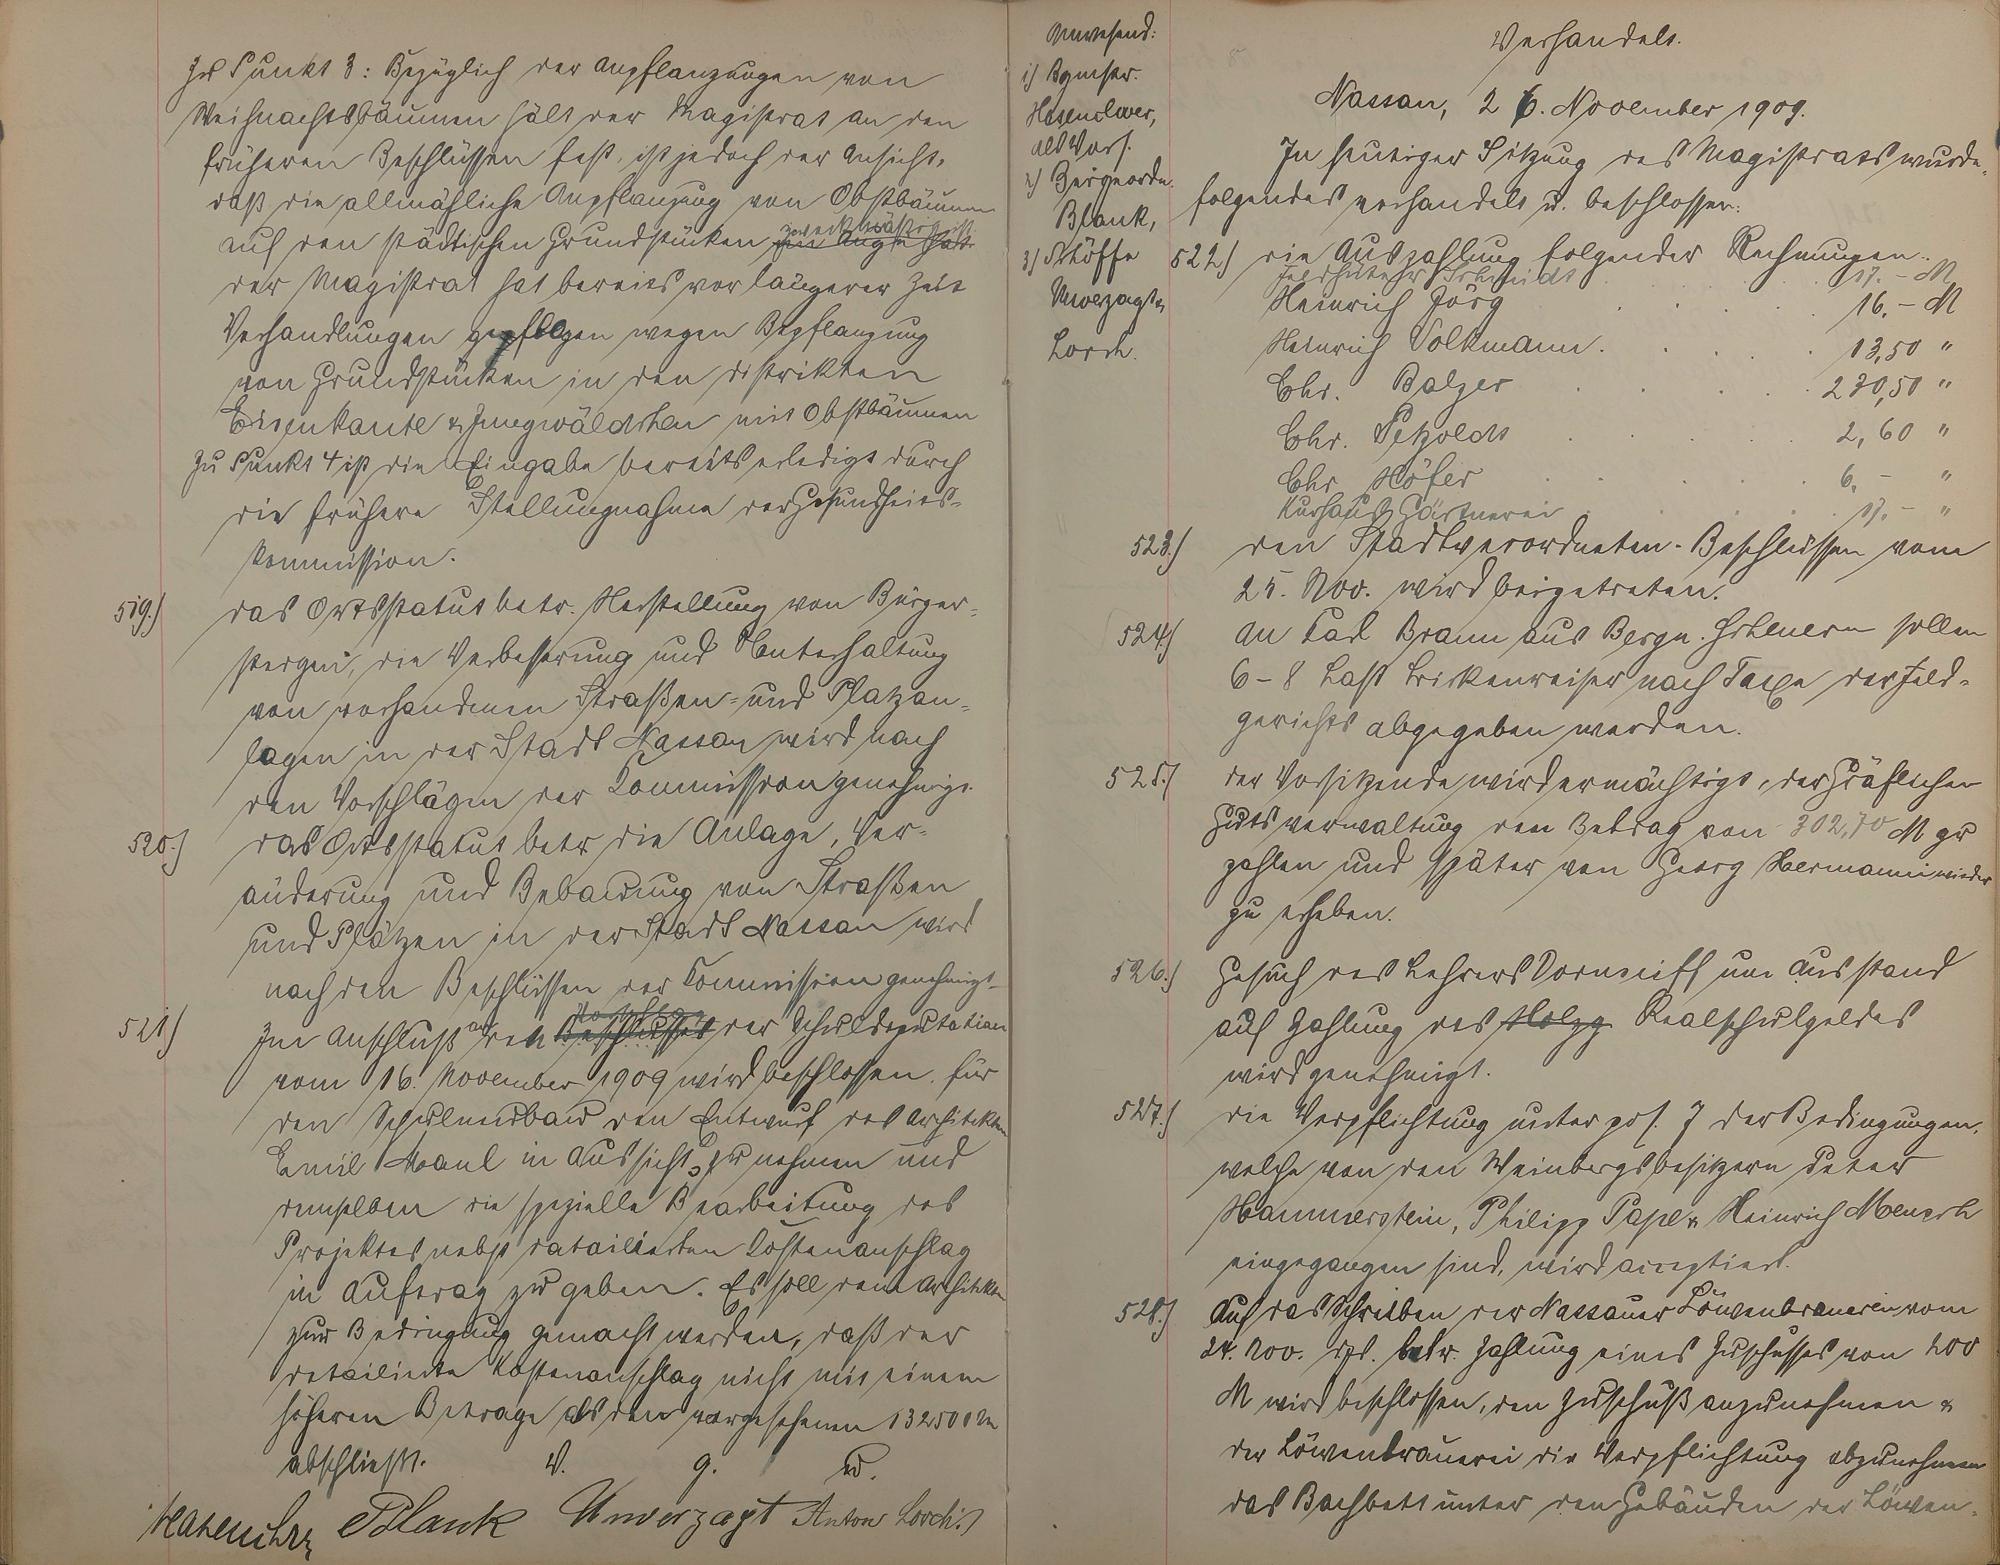 Zu Punkt 3: Bezüglich der Anpflanzungen von
Weihnachtsbäumen hält der Magistrat an den
früheren Beschlüssen fest, ist jedoch der Ansicht,
daß die allmähliche Anpflanzung von Obstbäumen
zweckmäßig ist
auf den städtischen Grundstücken
der Magistrat hat bereits vor längerer Zeit
Verhandlungen gepflogen wegen Bepflanzung
von Grundstücken in den Distrikten
& Jungwäldchen mit Obstbäumen
Zu Punkt 4 ist die Eingabe bereits erledigt durch
die frühere Stellungnahme der Gesundheits-
kommission.
519.) das Ortsstatut betr. Herstellung von Bürger-
steigen, die Verbesserung und Unterhaltung
von vorhandenen Straßen- und Platzan-
lagen in der Stadt Nassau wird nach
den Vorschlägen der Kommission genehmigt.
520.) das Ortsstatut betr. die Anlage, Ver-
änderung und Bebauung von Straßen
und Plätzen in der Stadt Nassau wird
nach den Beschlüssen der Kommission genehmigt.
521.) Im Anschluß an den Beschlusses der Schuldeputation
vom 16. November 1909 wird beschlossen, für
den Schulneubau den Entwurf des Architekten
Emil in Aussicht zu nehmen und
demselben die spezielle Bearbeitung des
Projektes nebst detailierten Kostenanschlag
in Auftrag zu geben. Es soll dem Architekten
zur Bedingung gemacht werden, daß der
detailierte Kostenanschlag nicht mit einem
höheren Betrage als den vorgesehenen 132500 M
abschließt. V. g. u.
Hasenclever Blank Unverzagt Anton Lorch.
Anwesend:
1) Bgmstr.
Hasenclever,
als Vors.
2) Beigeordn.
Blank,
3) Schöffe
Unverzagt &
Lorch.
Verhandelt.
Nassau, 26. November 1909.
In heutiger Sitzung des Magistrats wurde
folgendes verhandelt u. beschlossen:
522.) die Auszahlung folgender Rechnungen.
Feldhüter Schmidt 17.- M
Heinrich Jörg 16.- M
Heinrich Volkmann. 13,50 "
Chr. Balzer 230,50 "
Chr. Petzoldt 2,60 "
Chr. Höfer 6.- "
Kurhaus Gärtnerei 17.- "
523.) den Stadtverordneten-Beschlüssen vom
25. Nov. wird beigetreten.
524.) An Karl Bramm aus Bergn. Scheuern sollen
6-8 Last Birkenreiser nach Taxe des Feld-
gerichts abgegeben werden.
525.) der Vorsitzende wird ermächtigt, der Gräflichen
Gutsverwaltung den Betrag von 302,70 M zu
zahlen und später von Georg Hermann wieder
zu erheben.
526.) Gesuch des Lehrers um Ausstand
auf Zahlung des Holzg Realschulgeldes
wird genehmigt.
527.) die Verpflichtung unter pos. 7 der Bedingungen,
welche von den Weinbergsbesitzern Peter
Hammerstein, Philipp Pape & Heinrich Mensch
eingegangen sind, wird acceptiert.
528.) Auf das Schreiben der Nassauer Löwenbrauerei vom
24. Nov. ds. betr. Zahlung eines Zuschusses von 200
M wird beschlossen, den Zuschuß anzunehmen &
der Löwenbrauerei die Verpflichtung abzunehmen
das Bachbett unter den Gebäuden der Löwen-